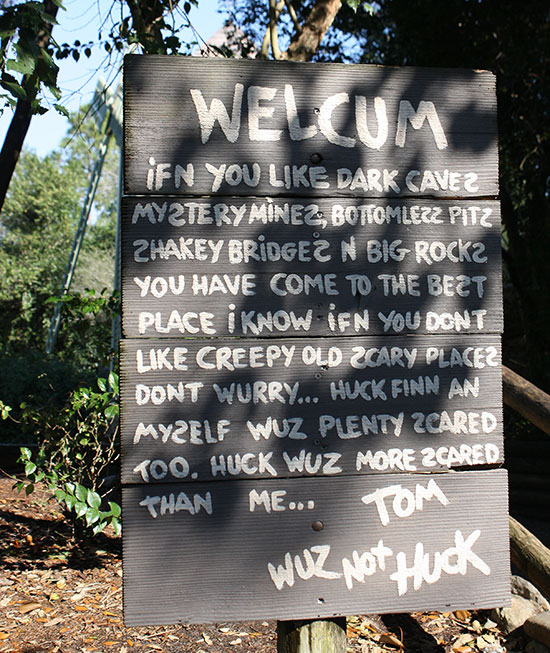 WELCUM
iFN YOU LIKE DARK CAVES
MYSTERY MINES, BOTOMLESS PITS
SHAKEY BRiDGES N BIG ROCKS
YOU HAVE COME TO THE BEST
PLACE i KNOW iFN YOU DONT
LIKE CREEPY OLD SCARY PLACES
DONT WURRY... HUCK FINN AN
MYSELF WUZ PLENTY SCARED
TOO. HUCK WUZ MORE SCARED
THAN ME... TOM
WUZ NOT HUCK